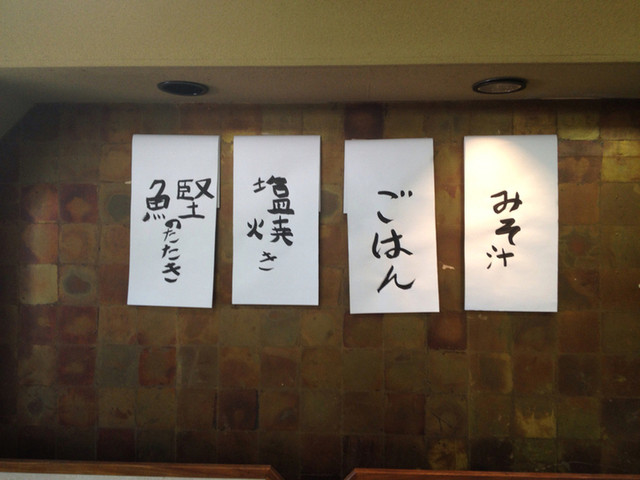 みそ汁
ごはん
塩焼き
鰹のたたき